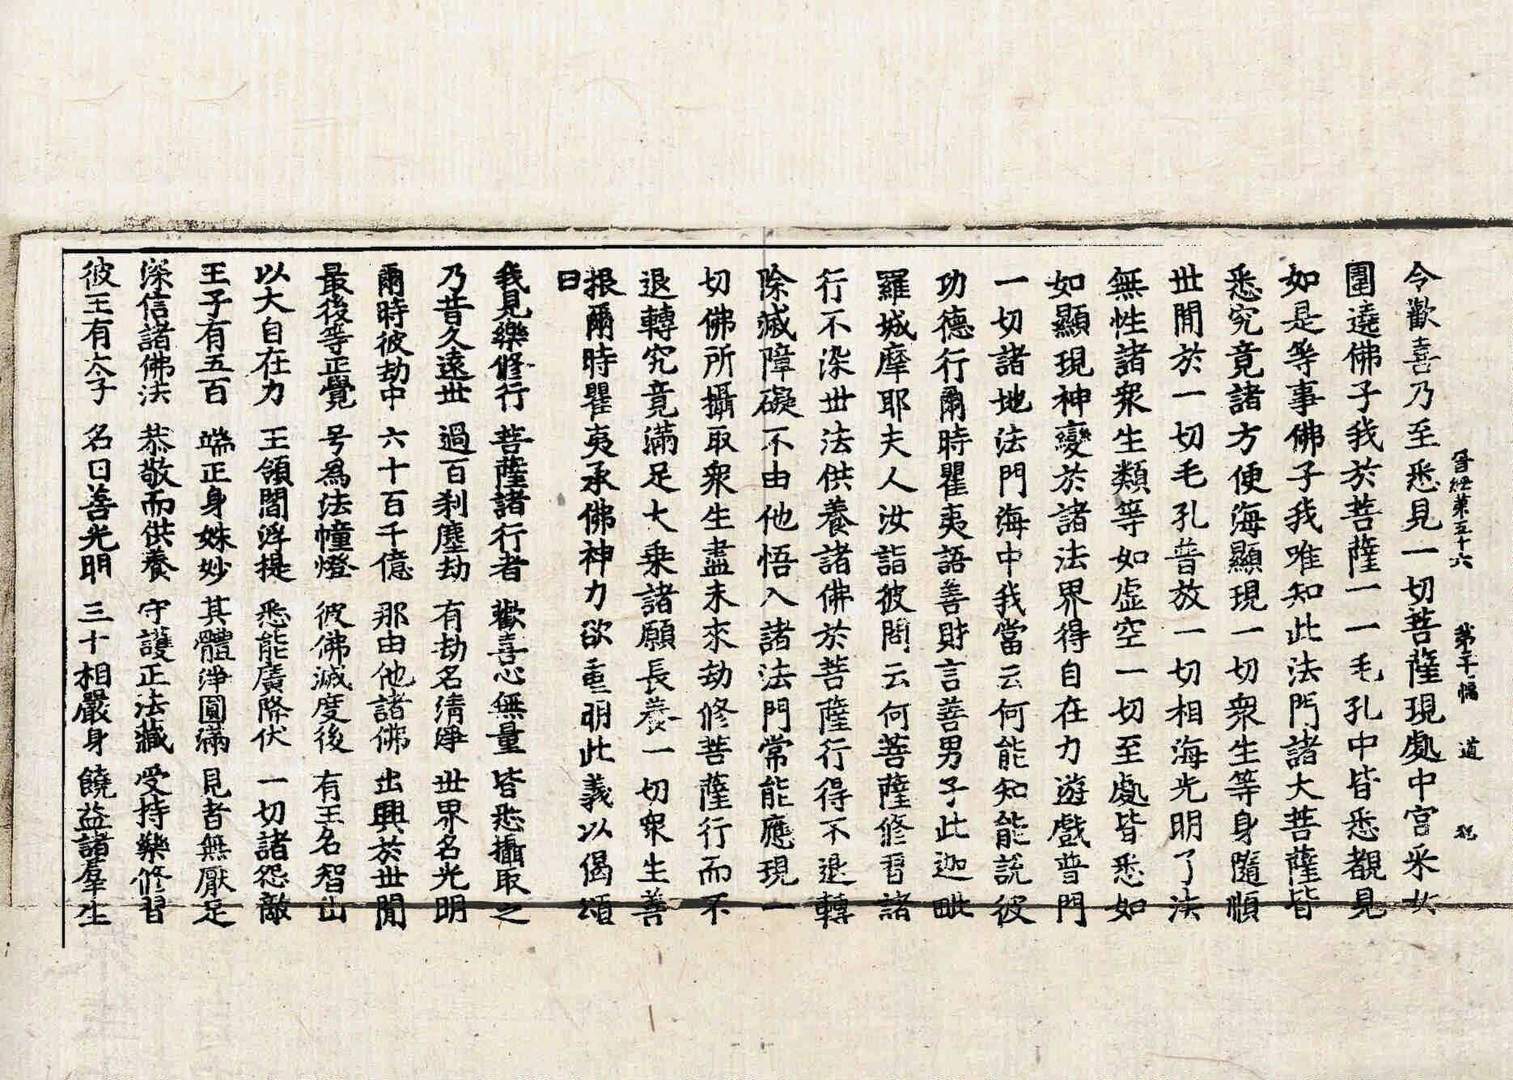 晉經第五十六 第二十幅 道
令歡喜乃至悉見一切菩薩現處中宮采女
圍遶佛子我於菩薩一一毛孔中皆悉覩見
如是等事佛子我唯知此法門諸大菩薩皆
悉究竟諸方便海顯現一切衆生等身隨順
世間於一切毛孔普放一切相海光明了法
無性諸衆生類等如虛空一切至處皆悉如
如顯現神變於諸法界得自在力遊戲普門
一切諸地法門海中我當云何能知能說彼
功德行爾時瞿夷語善財言善男子此迦毗
羅城摩耶夫人汝詣彼問云何菩薩修習諸
行不染世法供養諸佛於菩薩行得不退轉
除滅障礙不由他悟入諸法門常能應現一
切佛所攝取衆生盡未來劫修菩薩行而不
退轉究竟滿足大乘諸願長養一切衆生善
根爾時瞿夷承佛神力欲重明此義以偈頌
曰
我見樂修行 菩薩諸行者 歡喜心無量 皆悉攝取之
乃昔久遠世 過百刹塵劫 有劫名清淨 世界名光明
爾時彼劫中 六十百千億 那由他諸佛 出興於世間
最後等正覺 号爲法幢燈 彼佛滅度後 有王名智山
以大自在力 王領閻浮提 悉能廣降伏 一切諸怨敵
王子有五百 端正身姝妙 其體淨圓滿 見者無厭足
深信諸佛法 恭敬而供養 守護正法藏 受持樂修習
彼王有太子 名曰善光明 三十相嚴身 饒益諸羣生